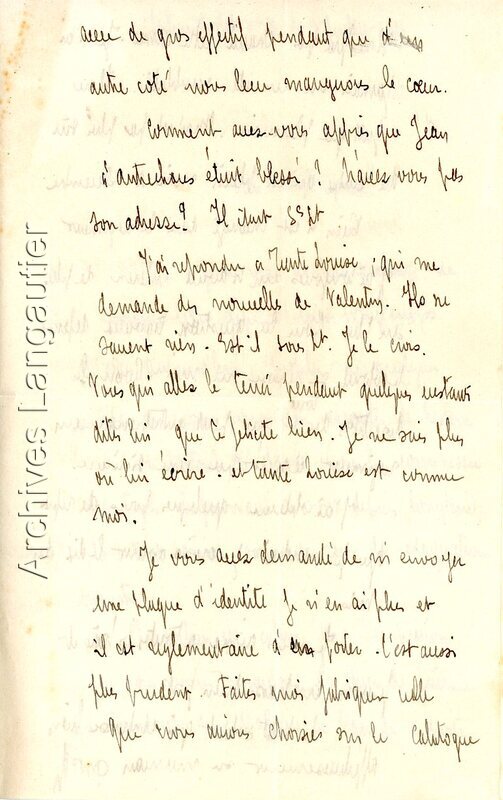 avec de gros effectif pendant que d'un
autre coté nous leur mangnons le cœur.
Comment avez-vous appris que Jean
d'Autrechaus était blessé ? N'avez vous pas
son adresse ? Il était S/s Lt
J'ai repondu a Tante Louise, qui me
demande des nouvelles de Valentin. Ils ne
savent rien. Est il sous Lt. Je le crois.
Vous qui allez le tenir pendant quelques instants
dites lui que le felicite bien. Je ne sais plus
où lui écrire. et tante Louise est comme
moi.
Je vous avais demandé de m'envoyer
une plaque d'identité Je n'en ai plus et
il est reglementaire d'en porter. C'est aussi
plus prudent. Faites moi fabriquer celle
que nous avions choisies sur le catalogue
Archives Langautier